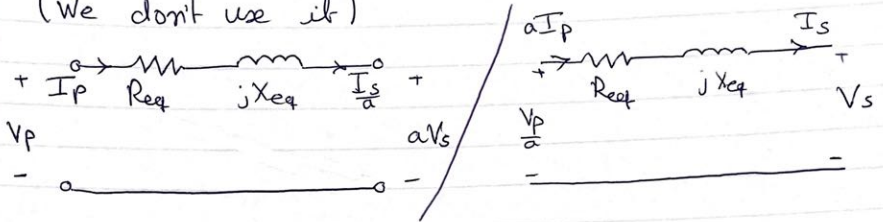 (We don't use it)
+ Ip Req jXeq Is/a +
Vp aVs
- -
aIp Is
+ Req jXeq +
Vp/a Vs
- -